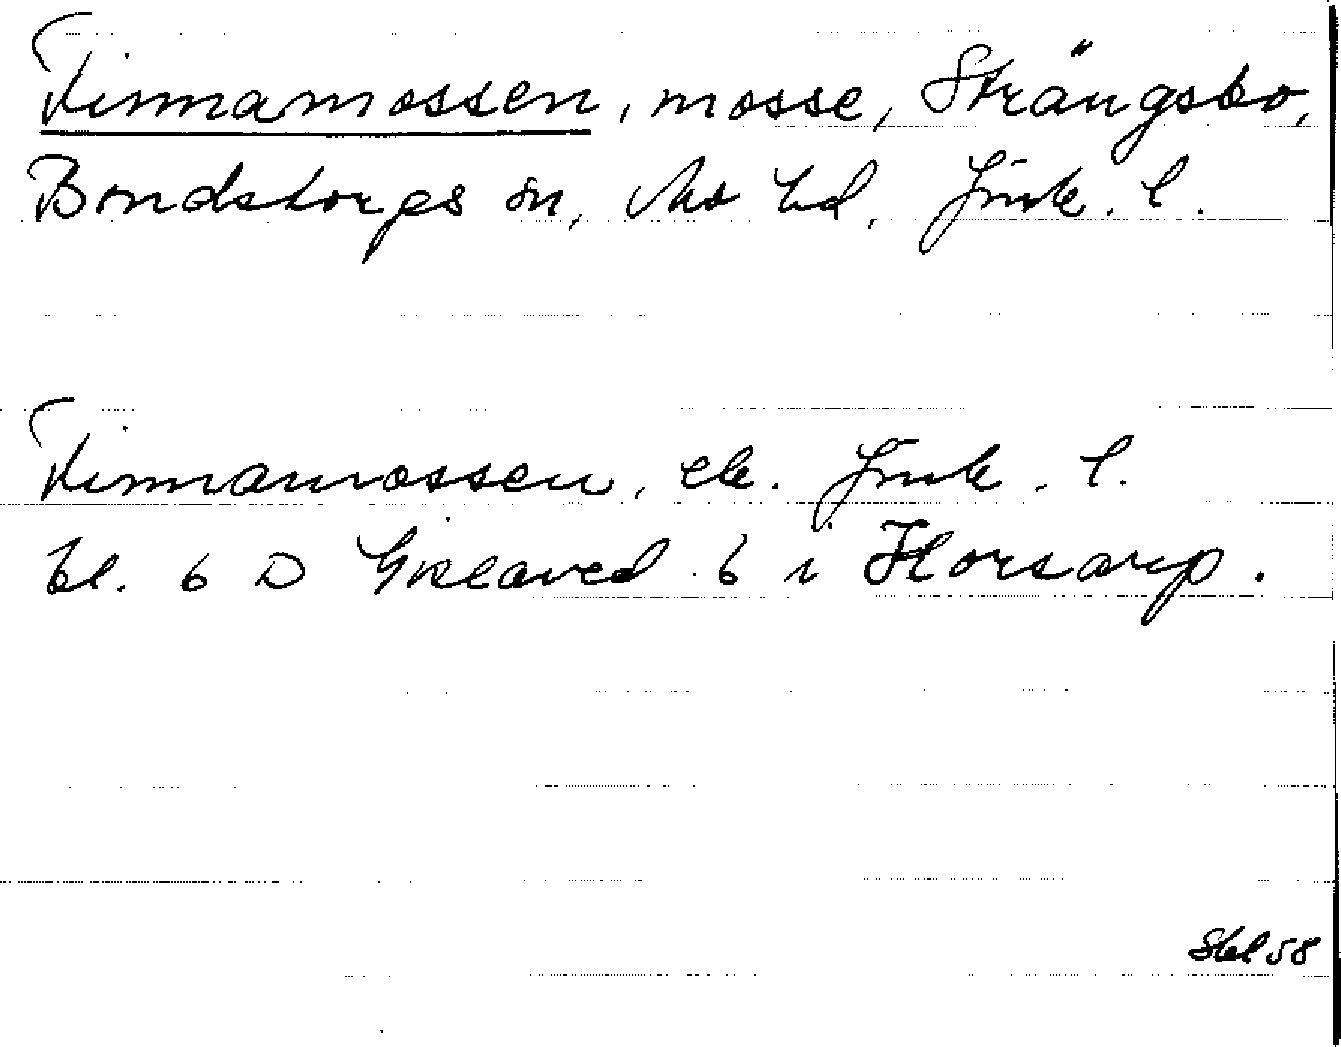 Finnamossen, mosse, Strängsbo,
Bondstorps sn, Mo hd, Jönk. l.
Finnamossen, ek. Jönk. l.
bl. 6 D Gislaved 6 i Horsarp.
58